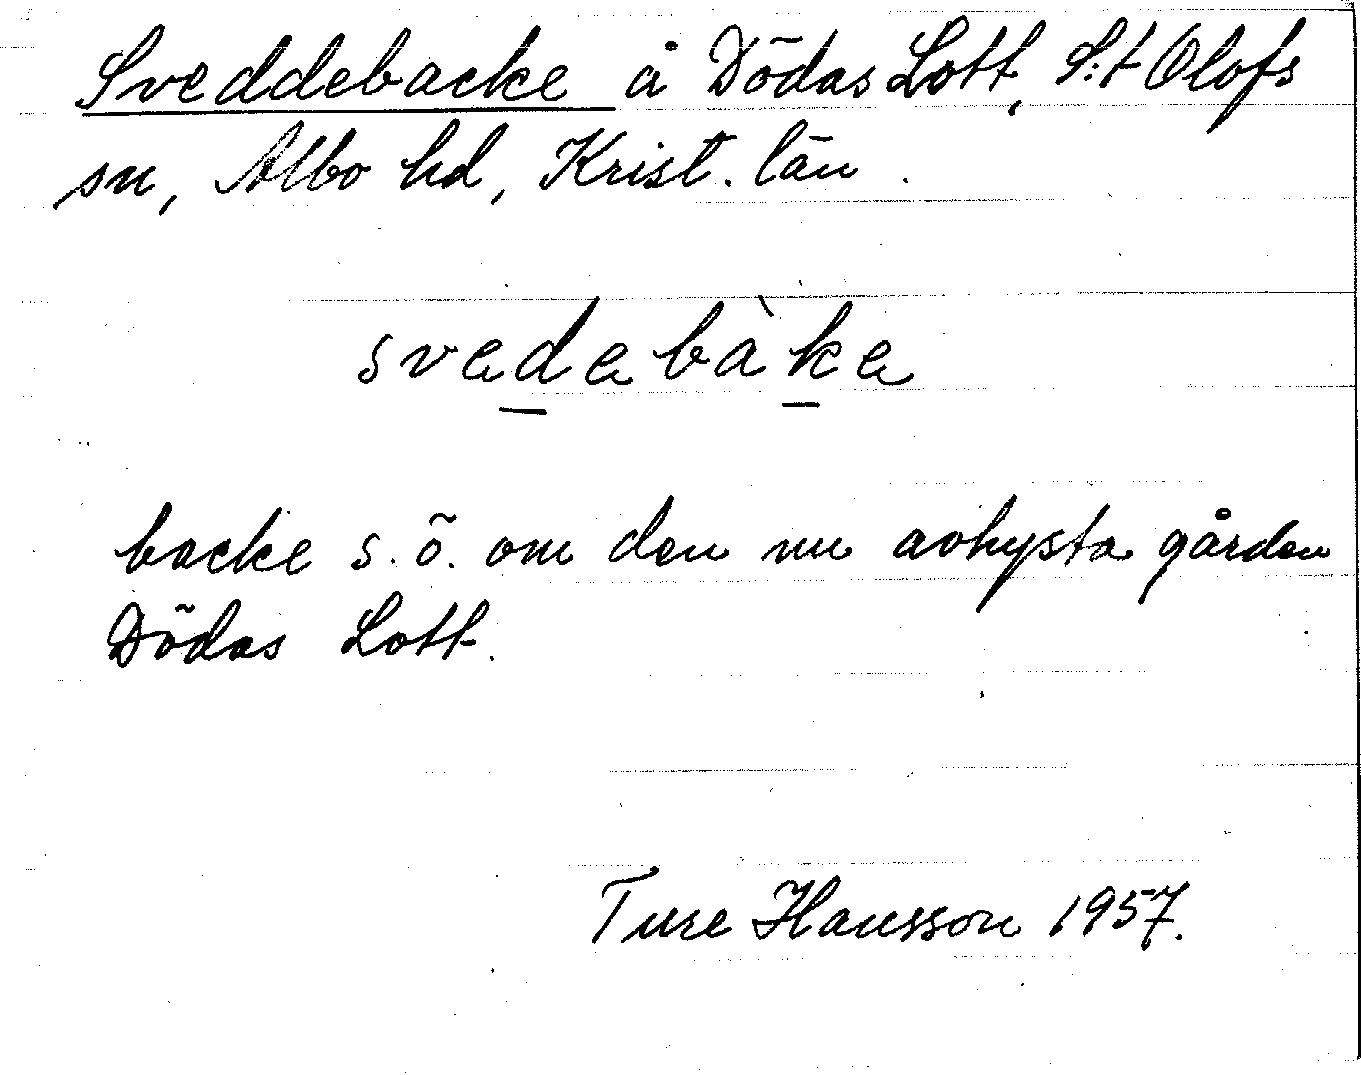 Sveddebacke å Dödas Lott, S:t Olofs
sn, Albo hd, Krist. län.
svedebàke
backe s.ö. om den nu avhysta gården
Dödas Lott.
Ture Hansson 1957.